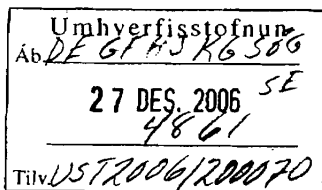 Umhverfisstofnun
Áb. DE GFHS KG SÖG
SE
27 DES. 2006
4861
Tilv. UST2006/200070